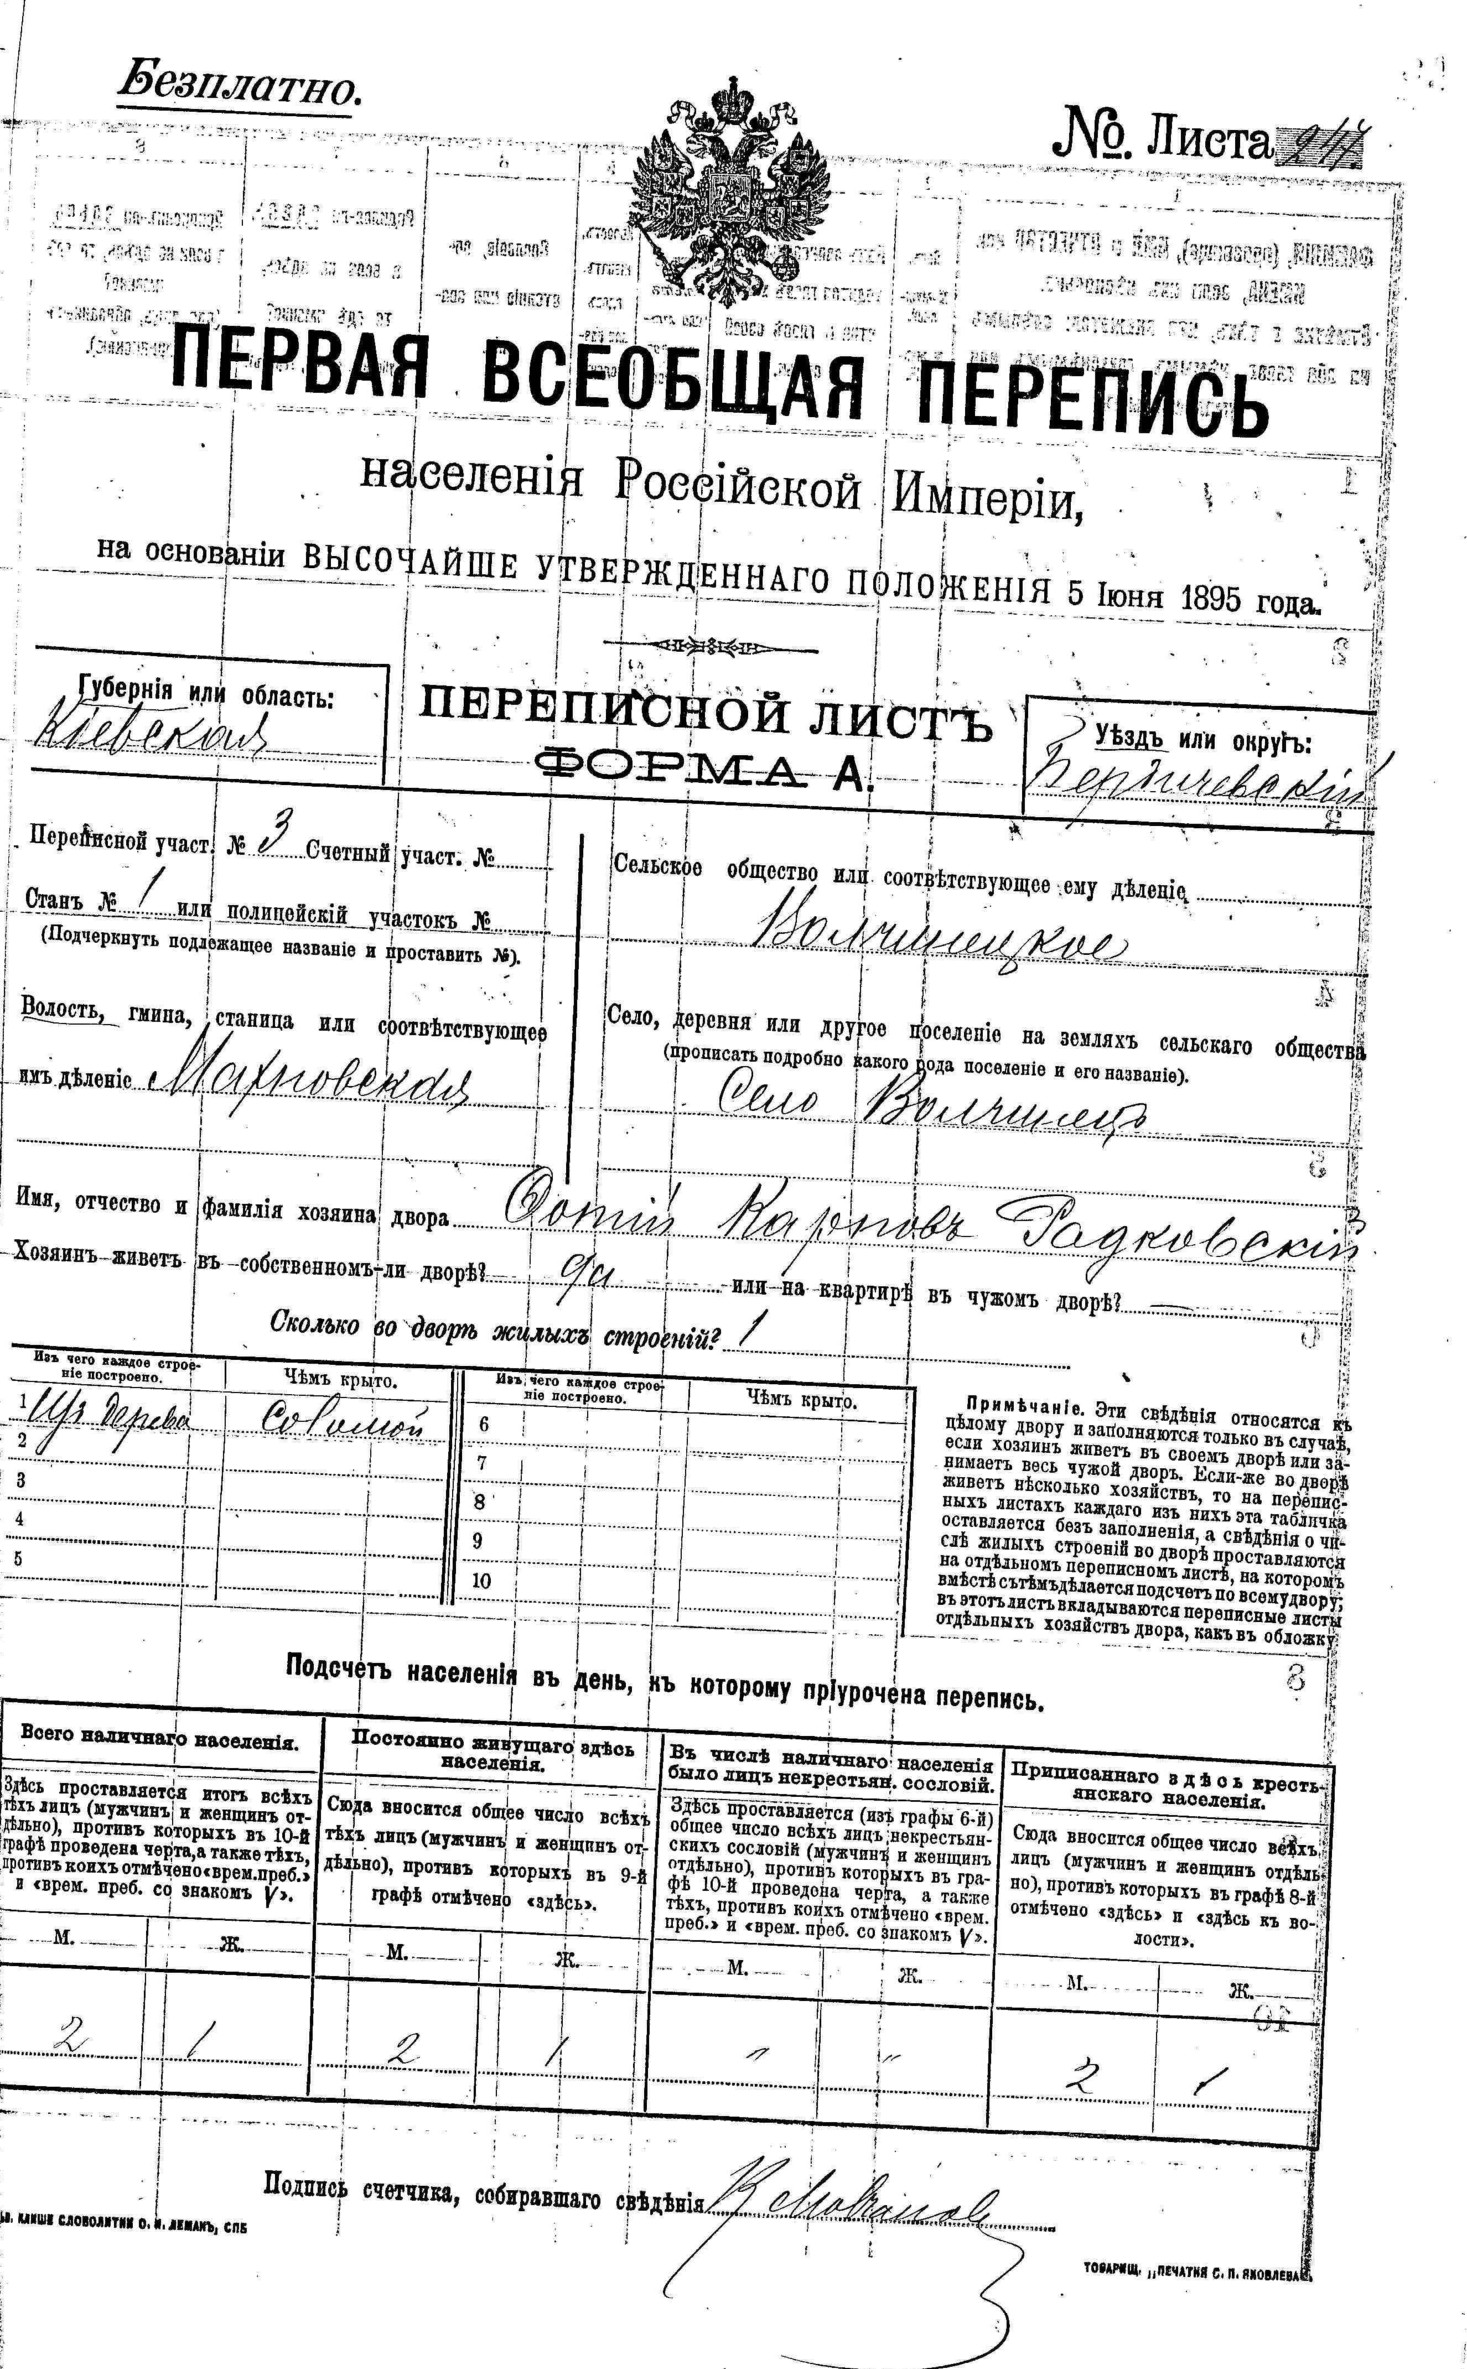 Безплатно.
№. Листа 247.
ПЕРВАЯ ВСЕОБЩАЯ ПЕРЕПИСЬ
населенія Россійской Имперіи,
на основаніи ВЫСОЧАЙШЕ УТВЕРЖДЕННАГО ПОЛОЖЕНІЯ 5 Іюня 1895 года.
Губернія или область:
Кіевская
ПЕРЕПИСНОЙ ЛИСТЪ
ФОРМА А.
Уѣздъ или округъ:
Бердичевскій
Переписной участ. № 3 Счетный участ. №
Станъ № 1 или полицейскій участокъ №
(Подчеркнуть подлежащее названіе и проставить №).
Волость, гмина, станица или соотвѣтствующее
имъ дѣленіе Махновская
Сельское общество или соотвѣтствующее ему дѣленіе
Волчинецкое
Село, деревня или другое поселеніе на земляхъ сельскаго общества
(прописать подробно какого рода поселеніе и его названіе).
Село Волчинецъ
Имя, отчество и фамилія хозяина двора Фотій Карповъ Радковскій
Хозяинъ живетъ въ собственномъ-ли дворѣ? да или на квартирѣ въ чужомъ дворѣ? —
Сколько во дворѣ жилыхъ строеній? 1
Изъ чего каждое строе-
ніе построено.
Чѣмъ крыто.
Изъ чего каждое строе-
ніе построено.
Чѣмъ крыто.
1 Изъ дерева Соломой 6
2 7
3 8
4 9
5 10
Примѣчаніе. Эти свѣдѣнія относятся къ
цѣлому двору и заполняются только въ случаѣ,
если хозяинъ живетъ въ своемъ дворѣ или за-
нимаетъ весь чужой дворъ. Если-же во дворѣ
живетъ нѣсколько хозяйствъ, то на перепис-
ныхъ листахъ каждаго изъ нихъ эта табличка
оставляется безъ заполненія, а свѣдѣнія о чи-
слѣ жилыхъ строеній во дворѣ проставляются
на отдѣльномъ переписномъ листѣ, на которомъ
вмѣстѣ съ тѣмъ дѣлается подсчетъ по всему двору;
въ этотъ листъ вкладываются переписные листы
отдѣльныхъ хозяйствъ двора, какъ въ обложку.
Подсчетъ населенія въ день, къ которому пріурочена перепись.
Всего наличнаго населенія.
Здѣсь проставляется итогъ всѣхъ
тѣхъ лицъ (мужчинъ и женщинъ от-
дѣльно), противъ которыхъ въ 10-й
графѣ проведена черта, а также тѣхъ,
противъ коихъ отмѣчено «врем. преб.»
и «врем. преб. со знакомъ V».
М. Ж.
2 1
Постоянно живущаго здѣсь
населенія.
Сюда вносится общее число всѣхъ
тѣхъ лицъ (мужчинъ и женщинъ от-
дѣльно), противъ которыхъ въ 9-й
графѣ отмѣчено «здѣсь».
М. Ж.
2 1
Въ числѣ наличнаго населенія
было лицъ некрестьян. сословій.
Здѣсь проставляется (изъ графы 6-й)
общее число всѣхъ лицъ некрестьян-
скихъ сословій (мужчинъ и женщинъ
отдѣльно), противъ которыхъ въ гра-
фѣ 10-й проведена черта, а также
тѣхъ, противъ коихъ отмѣчено «врем.
преб.» и «врем. преб. со знакомъ V».
М. Ж.
" "
Приписаннаго здѣсь кресть-
янскаго населенія.
Сюда вносится общее число всѣхъ
лицъ (мужчинъ и женщинъ отдѣль-
но), противъ которыхъ въ графѣ 8-й
отмѣчено «здѣсь» и «здѣсь къ во-
лости».
М. Ж.
2 1
Подпись счетчика, собиравшаго свѣдѣнія
КЛИШЕ СЛОВОЛИТНИ О. И. ЛЕМАНЪ, СПБ
ТОВАРИЩ. „ПЕЧАТНЯ С. П. ЯКОВЛЕВА".